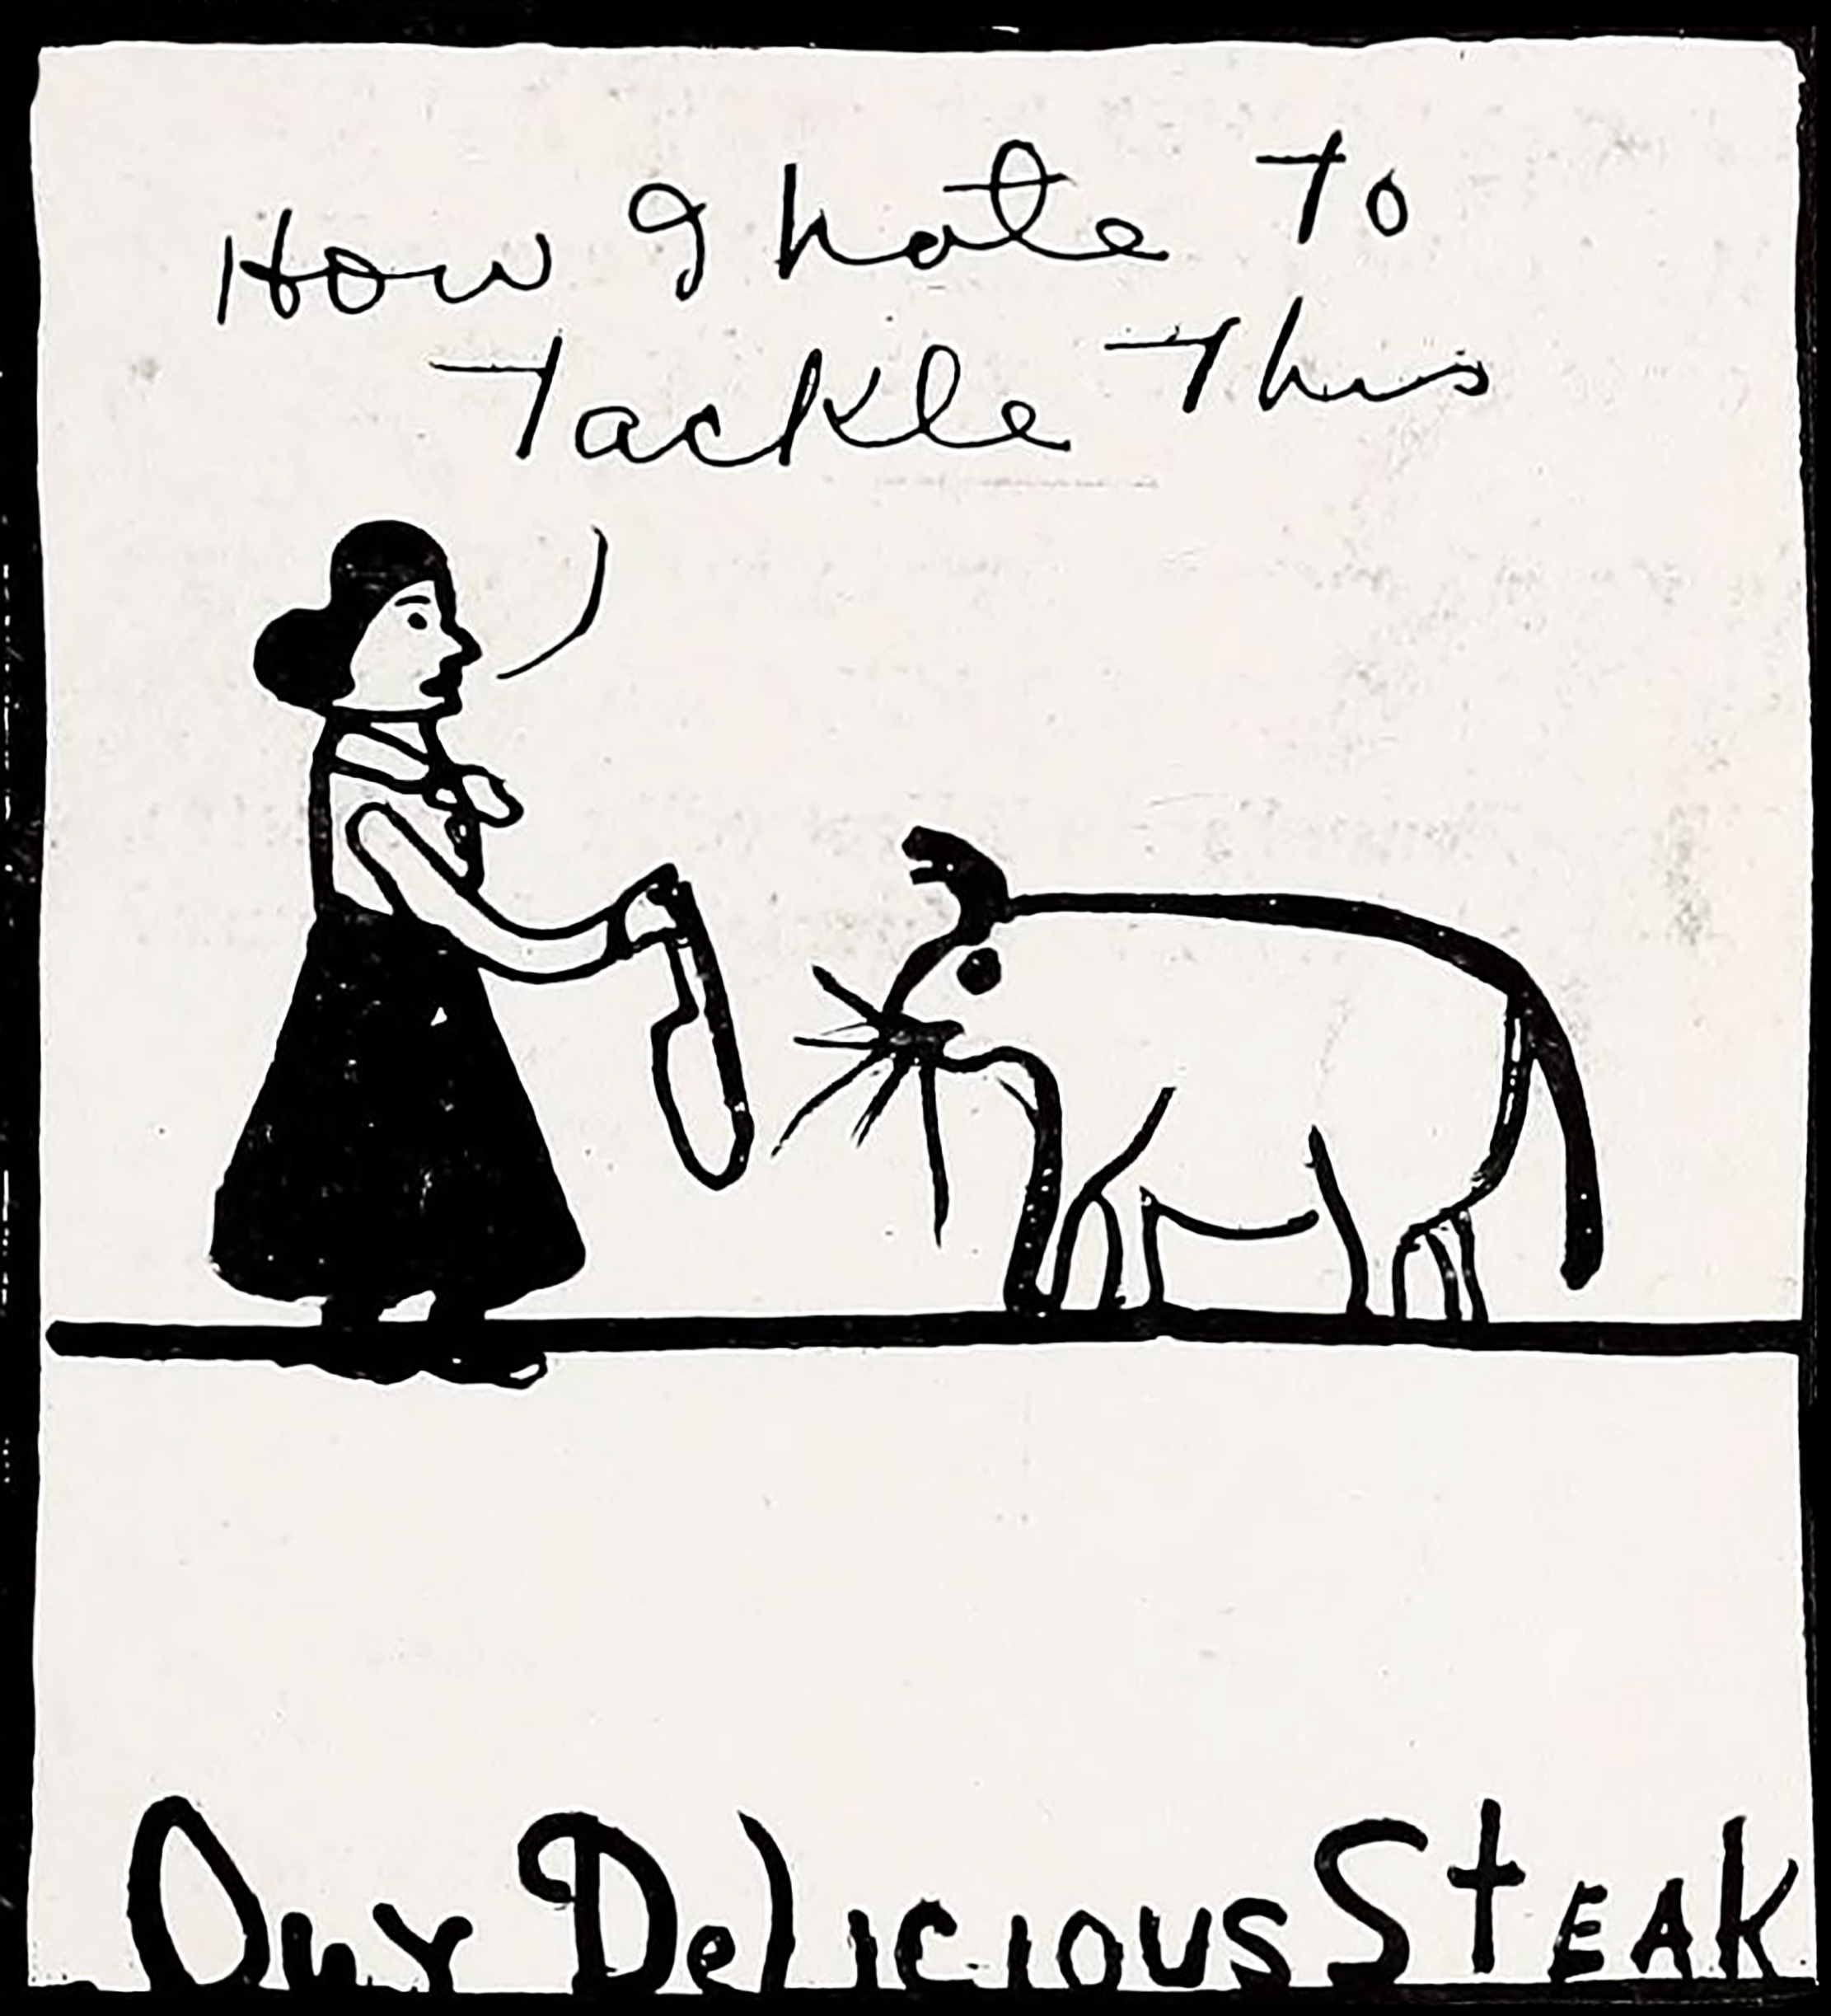 How I hate To
Tackle This
Our Delicious Steak